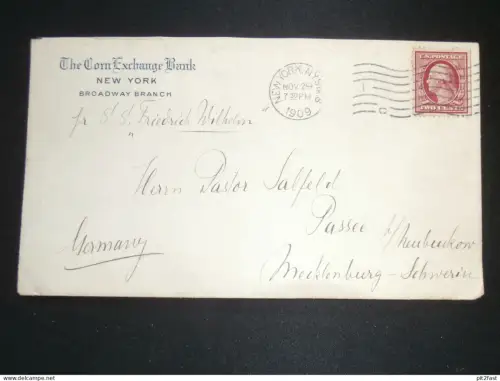 The Corn Exchange Bank
NEW YORK
BROADWAY BRANCH
NEW YORK, N.Y.
NOV 29
7-PM
1909
C
U.S. POSTAGE
TWO CENTS
pr S.S. Friedrich Wilhelm
Herrn Pastor Salfeld
Passee b/Neubuckow
Germany
Mecklenburg-Schwerin
pit2fast